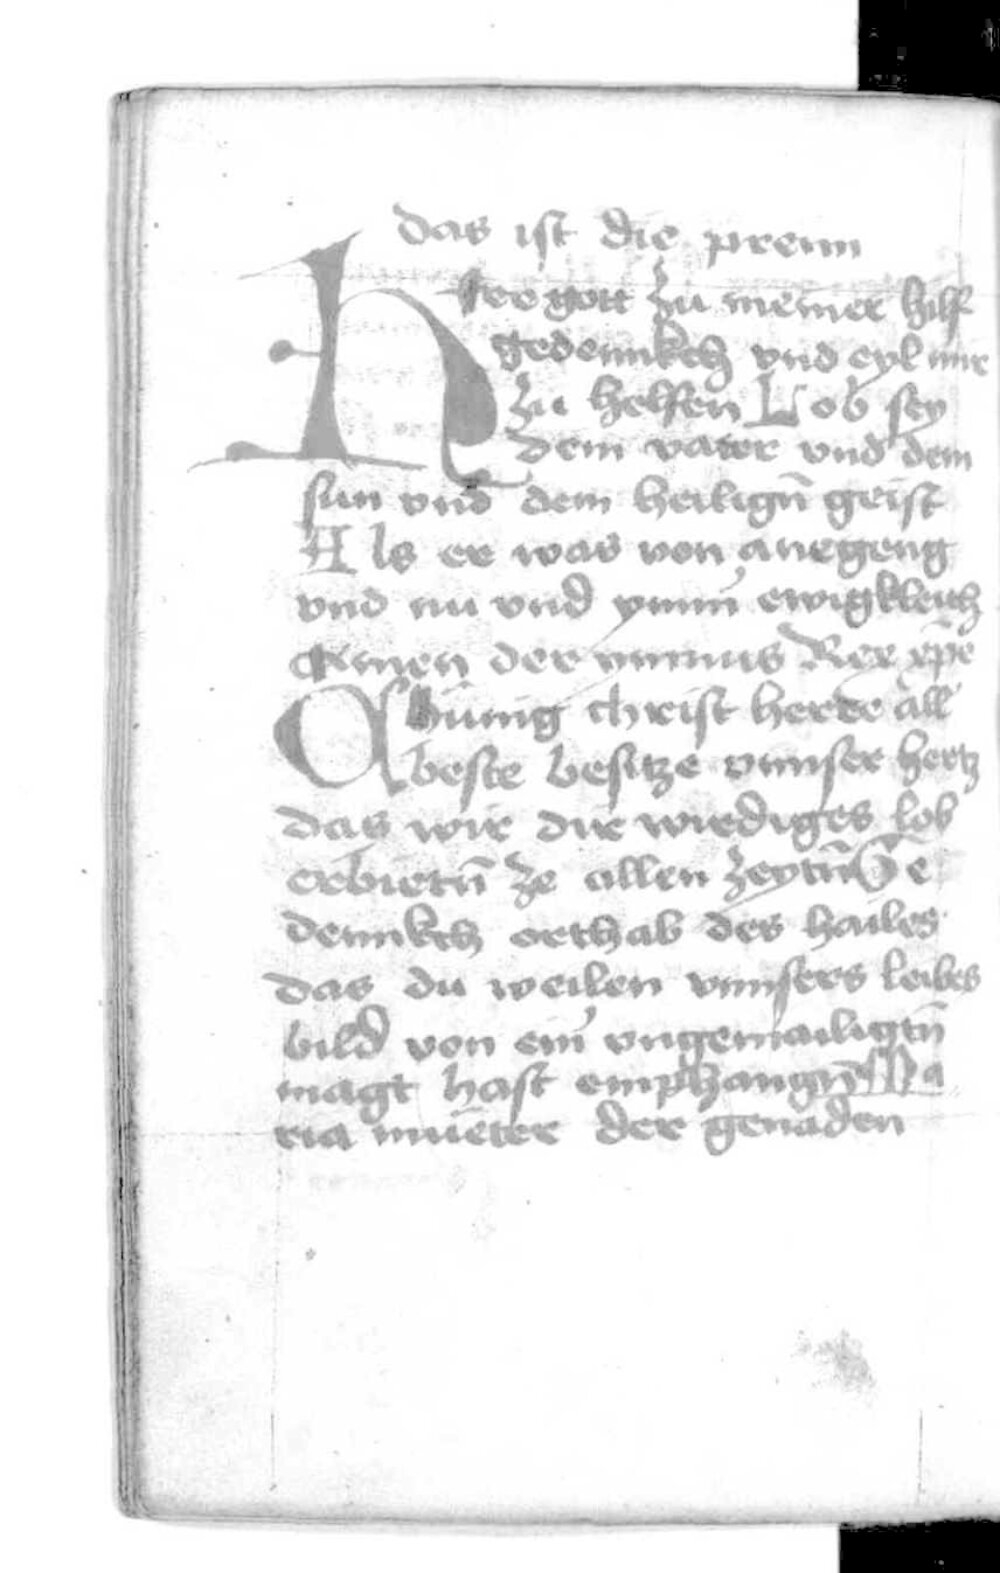 das ist die preim
Herr gott zu meiner hilf
gedennkch vnd eyl mir
zu helffen Lob sey
dem vater vnd dem
sun vnd dem heiligñ geist
Als er was von anegeng
vnd nu vnd ymm̃ ewigkleich
Amen der ymnus Rex xp̄e
O Künig christ herre all
beste besitze vnnser hertz
das wir dir wirdiges lob
erbietñ ze allen zeytñ Ge
dennkch orthab des hailes
das du weilen vnnsers leibes
bild von ein̄ vngemailigtñ
magt hast emphangñ Ma
ria mueter der genaden